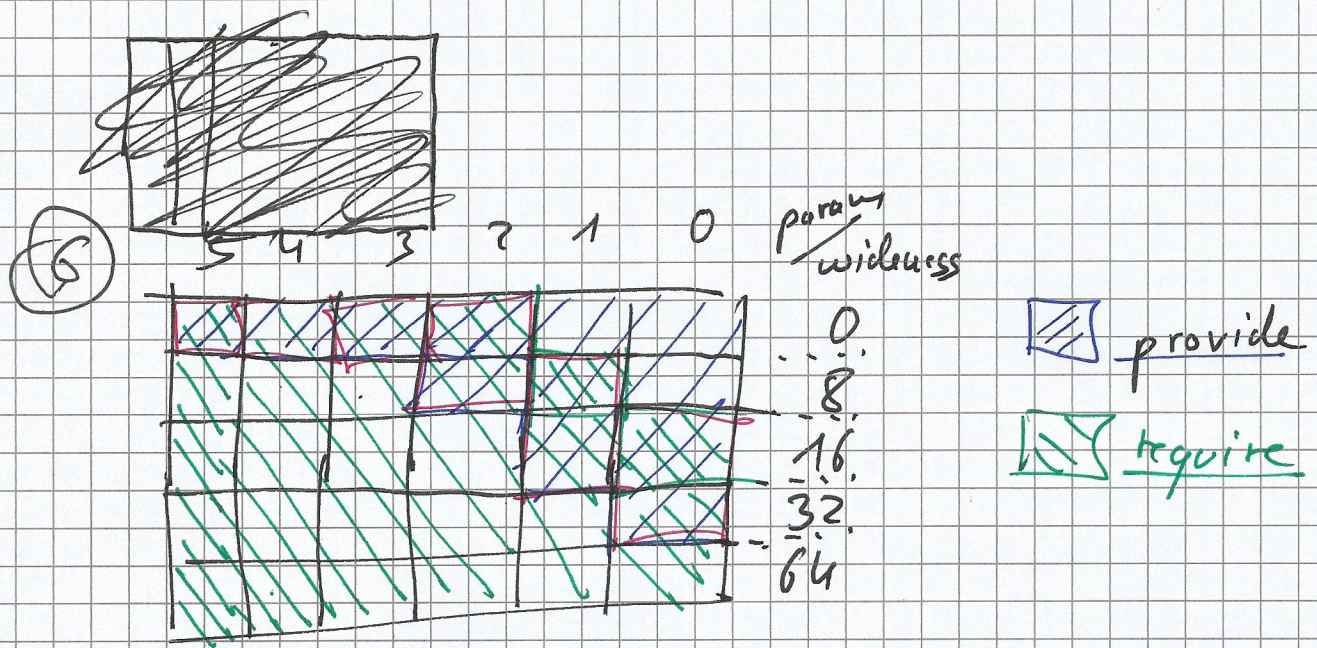 6
5 4 3 2 1 0
param/wideness
0
8
16
32
64
provide
require